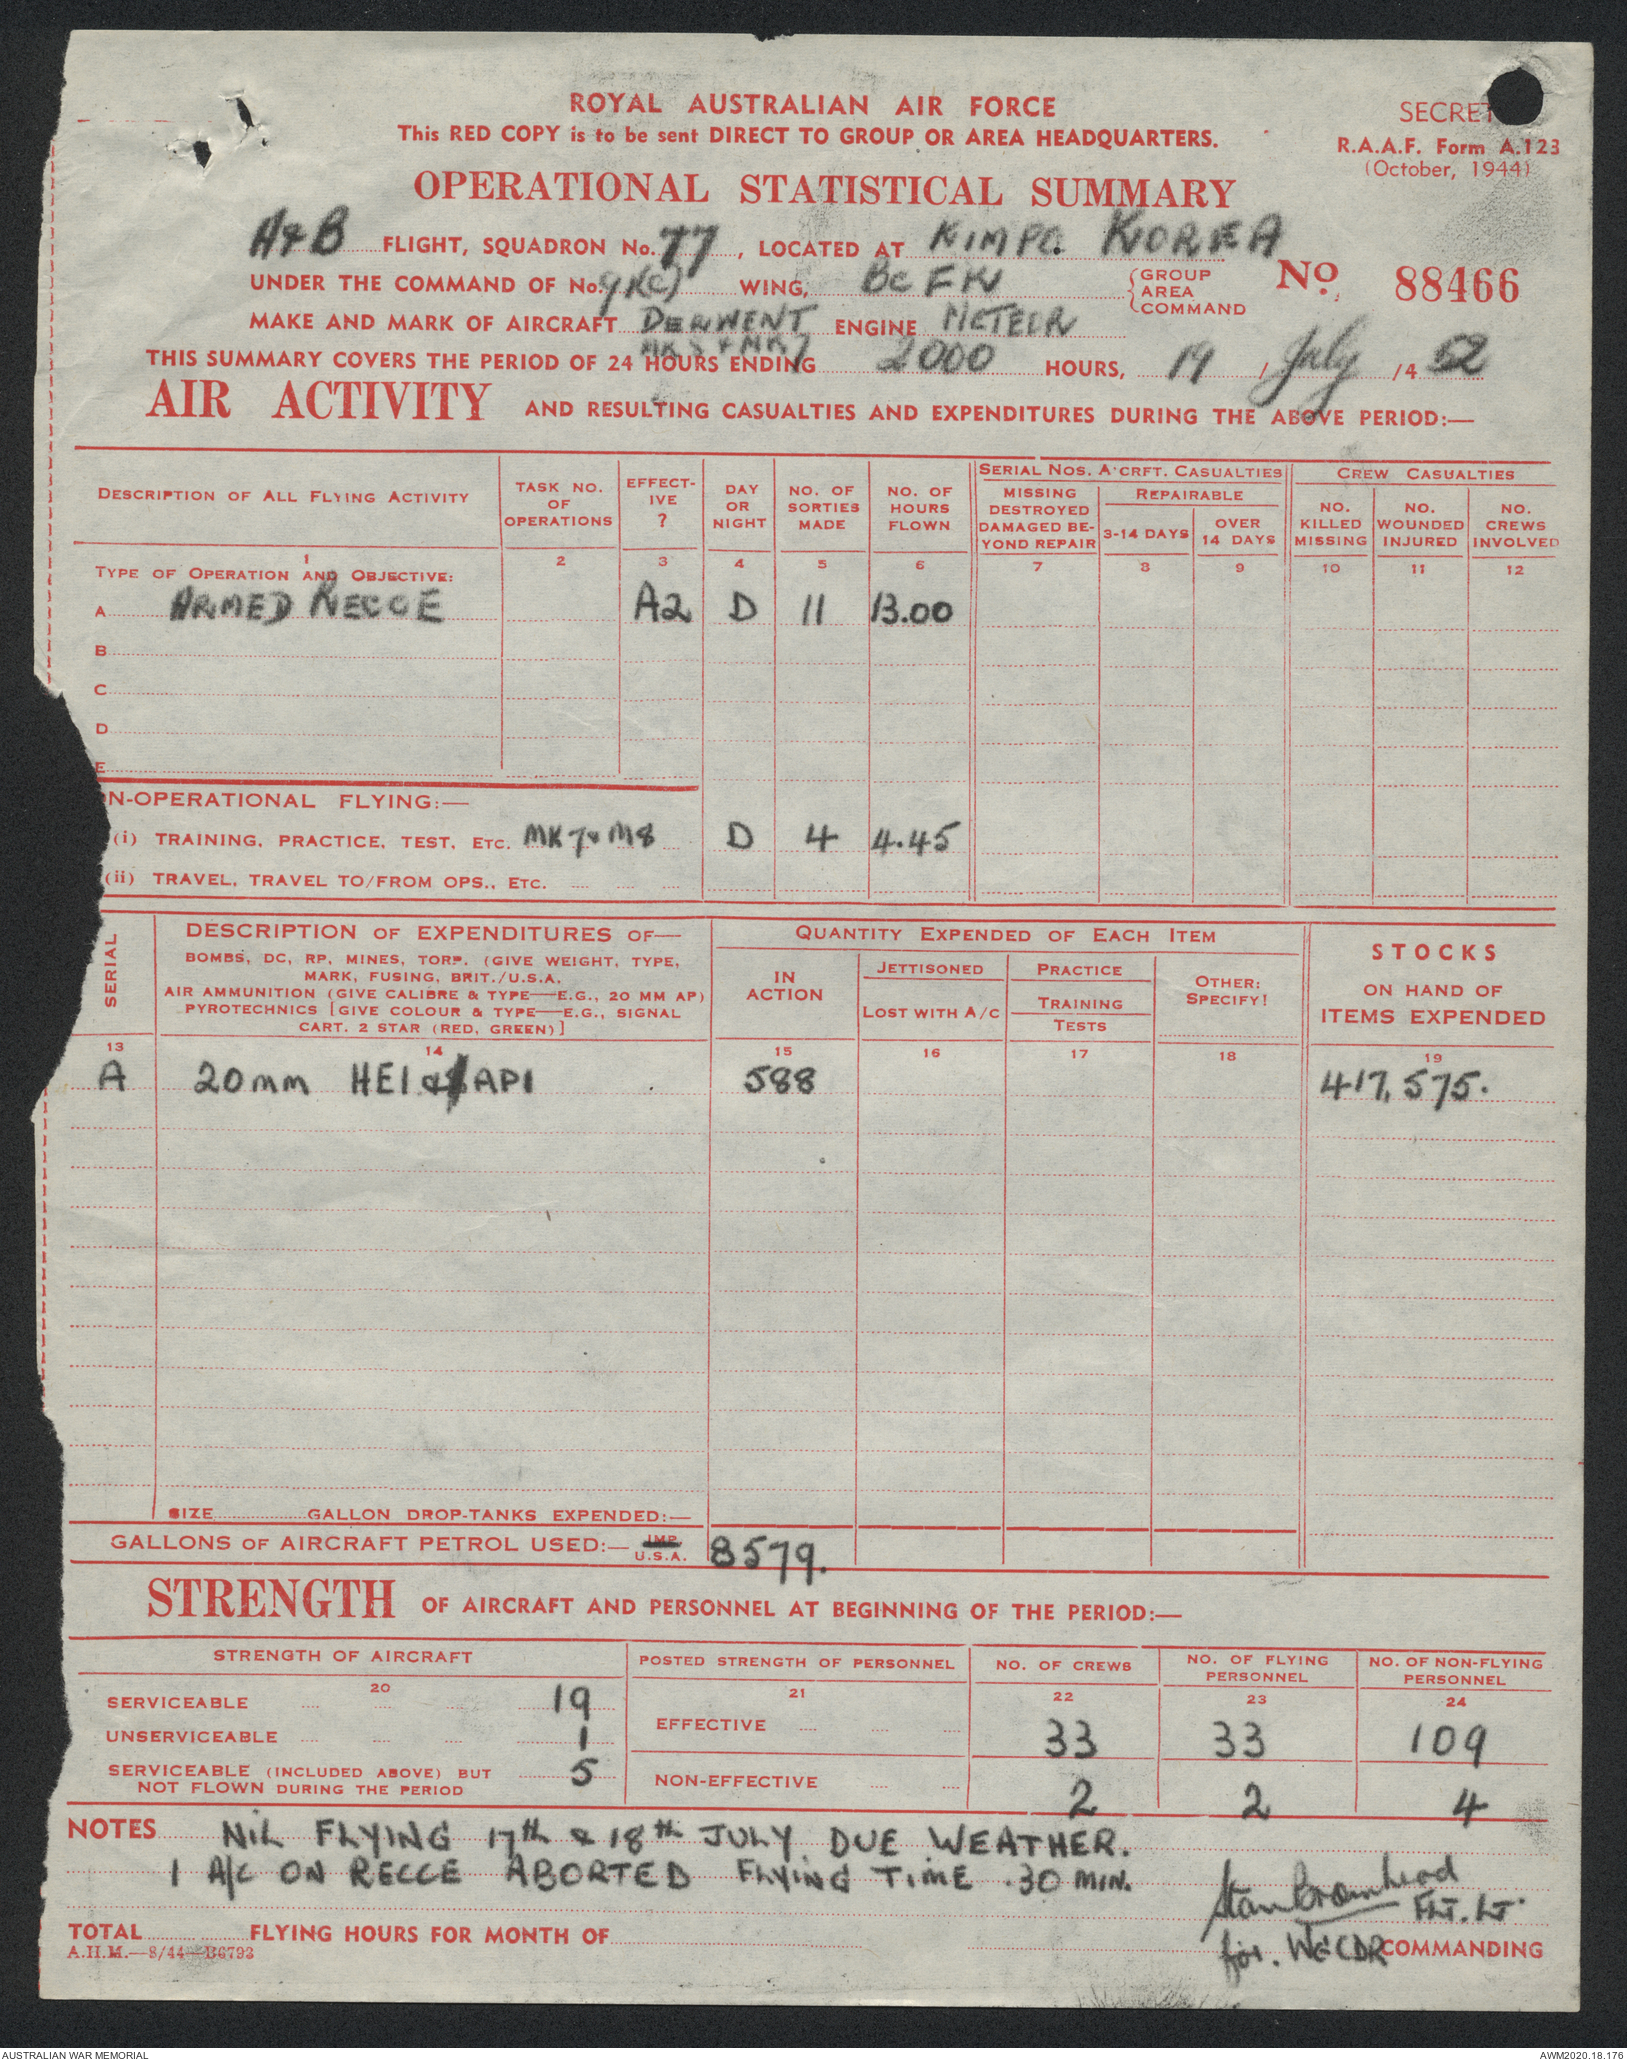 ROYAL AUSTRALIAN AIR FORCE
This RED COPY is to be sent DIRECT TO GROUP OR AREA HEADQUARTERS.
SECRET
R.A.A.F. Form A.123
(October, 1944)
OPERATIONAL STATISTICAL SUMMARY
A & B FLIGHT, SQUADRON No. 77, LOCATED AT KIMPO. KOREA
UNDER THE COMMAND OF No. 91(C) WING, BCFK {GROUP AREA COMMAND
No. 88466
MAKE AND MARK OF AIRCRAFT DERWENT ENGINE METEOR
MK 8 & MK 7
THIS SUMMARY COVERS THE PERIOD OF 24 HOURS ENDING 2000 HOURS, 19 / July /4 52
AIR ACTIVITY AND RESULTING CASUALTIES AND EXPENDITURES DURING THE ABOVE PERIOD:—
DESCRIPTION OF ALL FLYING ACTIVITY
TASK NO. OF OPERATIONS
EFFECT-IVE ?
DAY OR NIGHT
NO. OF SORTIES MADE
NO. OF HOURS FLOWN
SERIAL NOS. A'CRFT. CASUALTIES
MISSING DESTROYED DAMAGED BE-YOND REPAIR
REPAIRABLE
3-14 DAYS
OVER 14 DAYS
CREW CASUALTIES
NO. KILLED MISSING
NO. WOUNDED INJURED
NO. CREWS INVOLVED
1 2 3 4 5 6 7 8 9 10 11 12
TYPE OF OPERATION AND OBJECTIVE:
A ARMED RECCE A2 D 11 13.00
B
C
D
E
N-OPERATIONAL FLYING:—
(i) TRAINING, PRACTICE, TEST, ETC. MK 7 & M8 D 4 4.45
(ii) TRAVEL, TRAVEL TO/FROM OPS., ETC.
SERIAL
DESCRIPTION OF EXPENDITURES OF—
BOMBS, DC, RP, MINES, TORP. (GIVE WEIGHT, TYPE,
MARK, FUSING, BRIT./U.S.A.
AIR AMMUNITION (GIVE CALIBRE & TYPE—E.G., 20 MM AP)
PYROTECHNICS [GIVE COLOUR & TYPE—E.G., SIGNAL
CART. 2 STAR (RED, GREEN)]
QUANTITY EXPENDED OF EACH ITEM
IN ACTION
JETTISONED
LOST WITH A/C
PRACTICE
TRAINING
TESTS
OTHER: SPECIFY!
STOCKS
ON HAND OF
ITEMS EXPENDED
13 14 15 16 17 18 19
A 20mm HEI & API 588 417,575.
SIZE GALLON DROP-TANKS EXPENDED:—
GALLONS OF AIRCRAFT PETROL USED:— IMP. U.S.A. 8579.
STRENGTH OF AIRCRAFT AND PERSONNEL AT BEGINNING OF THE PERIOD:—
STRENGTH OF AIRCRAFT
POSTED STRENGTH OF PERSONNEL
NO. OF CREWS
NO. OF FLYING PERSONNEL
NO. OF NON-FLYING PERSONNEL
20 21 22 23 24
SERVICEABLE 19
UNSERVICEABLE 1
SERVICEABLE (INCLUDED ABOVE) BUT
NOT FLOWN DURING THE PERIOD 5
EFFECTIVE 33 33 109
NON-EFFECTIVE 2 2 4
NOTES NIL FLYING 17th & 18th JULY DUE WEATHER.
1 A/C ON RECCE ABORTED FLYING TIME .30 MIN.
Stan Bromhead
FLT. LT.
TOTAL FLYING HOURS FOR MONTH OF
for. WGCDR COMMANDING
A.H.M.—8/44—B6793
AUSTRALIAN WAR MEMORIAL
AWM2020.18.176